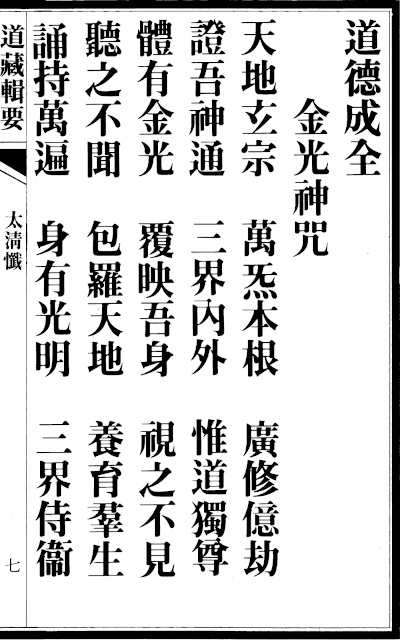 道德成全
金光神咒
天地玄宗　萬炁本根　廣修億劫
證吾神通　三界內外　惟道獨尊
體有金光　覆映吾身　視之不見
聽之不聞　包羅天地　養育羣生
誦持萬遍　身有光明　三界侍衞
道藏輯要　太清懺　七